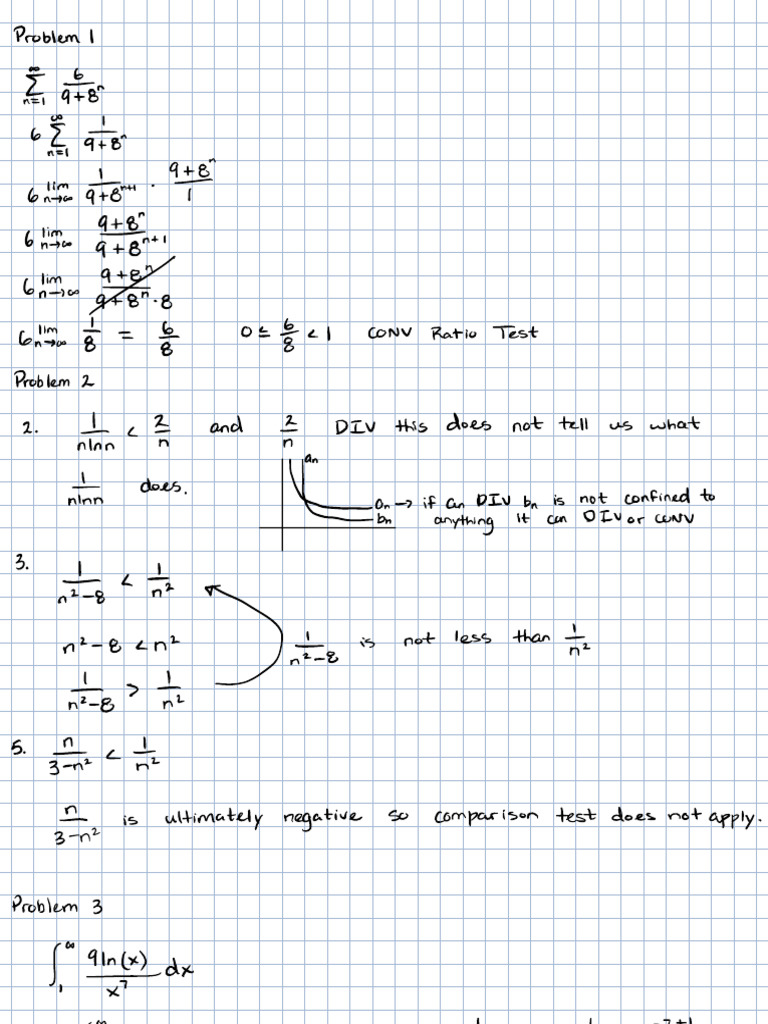 Problem 1
∞ Σ n=1 6/(9+8^n)
6 ∞ Σ n=1 1/(9+8^n)
6 lim n→∞ 1/(9+8^(n+1)) · (9+8^n)/1
6 lim n→∞ (9+8^n)/(9+8^(n+1))
6 lim n→∞ (9+8^n)/(9+8^n·8)
6 lim n→∞ 1/8 = 6/8 0 ≤ 6/8 < 1 CONV Ratio Test
Problem 2
2. 1/(nlnn) < 2/n and 2/n DIV this does not tell us what
1/(nlnn) does.
an
an → if an DIV bn is not confined to
bn anything it can DIV or CONV
3.
1/(n²-8) < 1/n²
n²-8 < n² 1/(n²-8) is not less than 1/n²
1/(n²-8) > 1/n²
5. n/(3-n²) < 1/n²
n/(3-n²) is ultimately negative so comparison test does not apply.
Problem 3
∫₁^∞ 9ln(x)/x⁷ dx